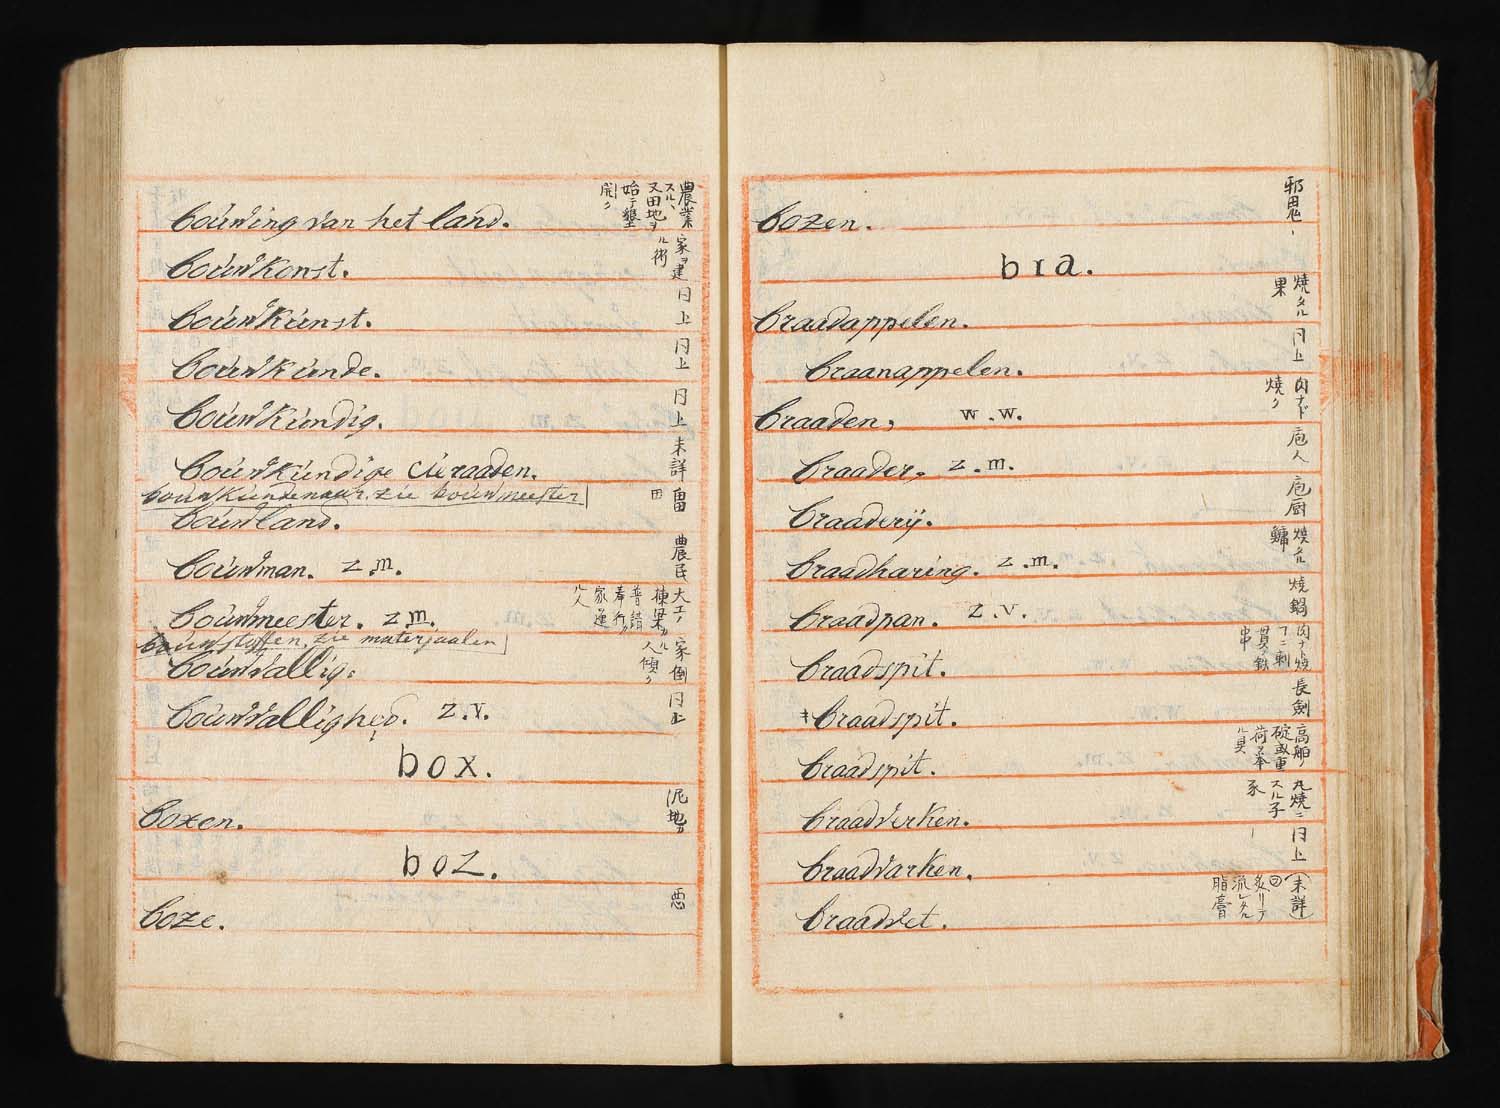 bouwing van het land.
農業
スル、
又田地ヲ
始テ墾
開ク
bouwkonst.
家ヲ建
ル術
bouwkunst.
同上
bouwkunde.
同上
bouwkundig.
同上
bouwkundige cieraaden.
未詳
bouwkundenaar, zie bouwmeester
bouwland.
田
bouwman. z.m.
農民
bouwmeester. z.m.
大工ノ
棟梁
普請
奉行
bouwstoffen, zie materjaalen
bouwvallig.
家倒
人傾ク
bouwvalligheid. z.v.
同上
box.
boxen.
泥地
boz.
boze.
悪
bozen.
bra.
braadappelen.
焼タル
果
braanappelen.
同上
braaden, w.w.
肉ナド
焼ク
braader, z.m.
庖人
braaderij.
庖厨
braadharing. z.m.
焼タル
braadpan. z.v.
焼鍋
braadspit.
肉ナド焼
串
braadspit.
長劍
braadspit.
ル具
braadverken.
丸焼ニ
スル子
豕
braadvarken.
同上
braadvet.
(未詳)
炙リテ
流レタル
脂膏